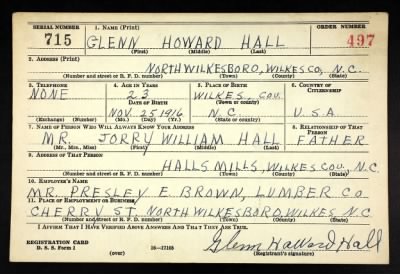 SERIAL NUMBER 1. NAME (Print) ORDER NUMBER
715 GLENN HOWARD HALL 497
(First) (Middle) (Last)
2. ADDRESS (Print)
NORTH WILKESBORO, WILKES CO, N.C.
(Number and street or R. F. D. number) (Town) (County) (State)
3. TELEPHONE 4. AGE IN YEARS 5. PLACE OF BIRTH 6. COUNTRY OF CITIZENSHIP
NONE 23 WILKES, COU.
DATE OF BIRTH (Town or county)
NOV. 25 1916 N.C. U.S.A.
(Exchange) (Number) (Mo.) (Day) (Yr.) (State or country)
7. NAME OF PERSON WHO WILL ALWAYS KNOW YOUR ADDRESS 8. RELATIONSHIP OF THAT PERSON
MR. JORRY WILLIAM HALL FATHER
(Mr., Mrs., Miss) (First) (Middle) (Last)
9. ADDRESS OF THAT PERSON
HALLS MILLS, WILKES COU. N.C.
(Number and street or R. F. D. number) (Town) (County) (State)
10. EMPLOYER'S NAME
MR. PRESLEY E. BROWN, LUMBER CO
11. PLACE OF EMPLOYMENT OR BUSINESS
CHERRY ST. NORTH WILKESBORO, WILKES, N.C.
(Number and street or R. F. D. number) (Town) (County) (State)
I AFFIRM THAT I HAVE VERIFIED ABOVE ANSWERS AND THAT THEY ARE TRUE.
REGISTRATION CARD
D. S. S. Form 1 (over) 16—17105
Glenn Howard Hall
(Registrant's signature)